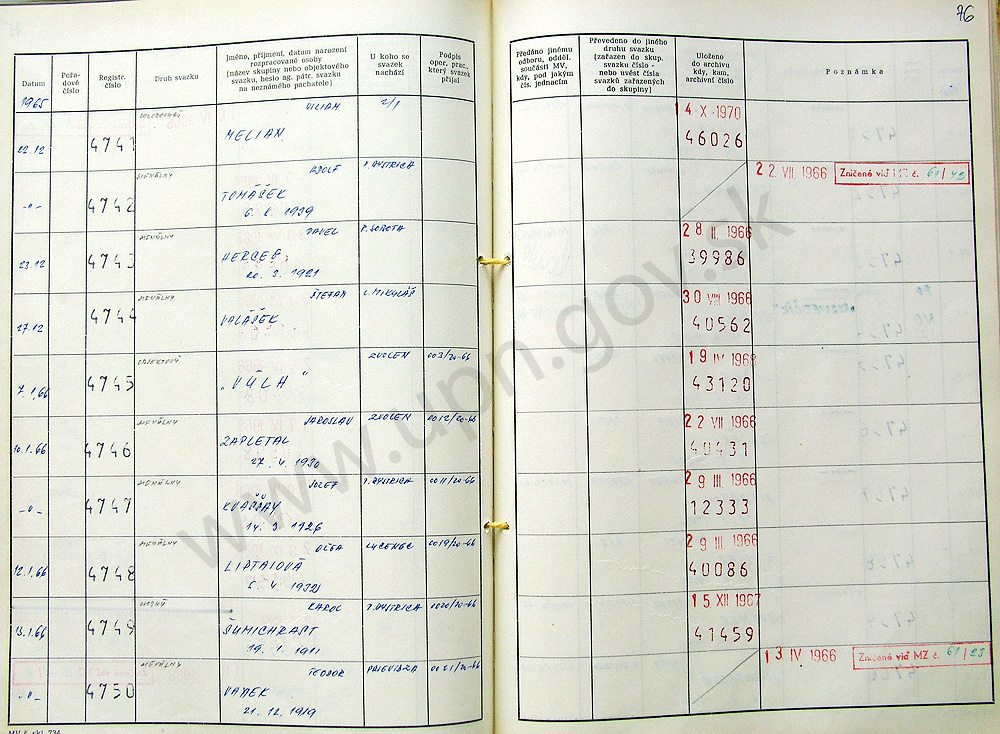 76
Datum
Pořadové číslo
Registr. číslo
Druh svazku
Jméno, příjmení, datum narození
rozpracované osoby
(název skupiny nebo objektového
svazku, heslo ag. pátr. svazku
na neznámého pachatele)
U koho se
svazek
nachází
Podpis
oper. prac.,
který svazek
přijal
Předáno jinému
odboru, odděl.
součásti MV,
kdy, pod jakým
čís. jednacím
Převedeno do jiného
druhu svazku
(zařazen do skup.
svazku číslo -
nebo uvést čísla
svazků zařazených
do skupiny)
Uloženo
do archivu
kdy, kam,
archivní číslo
Poznámka
1965
22.12 4741 VILIAM 2/1
MELIAN
14 X 1970
46026
-"- 4742 MENÁLNY ADOLF
TOMÁŠEK
1939
22. VII 1966 Zničené viď MZ č. 61/42
23.12 4743 MENÁLNY PAVEL P. SOBOTA
HERCEG
20. 2. 1921
28 II. 1966
39986
27.12 4744 MENÁLNY ŠTEFAN L. MIKULÁŠ
VALÁŠEK
30 VIII 1966
40562
7.1.66 4745 OBJEKTOVÝ ZVOLEN 003/20-66
19 IV 1968
43120
10.1.66 4746 MENÁLNY JAROSLAV ZVOLEN 0012/20-66
ZAPLETAL
27. 4. 1930
22 VII 1966
40431
-"- 4747 MENÁLNY JOZEF P. BYSTRICA 0011/20-66
KVAŠŠAY
14. 3. 1926
29 III. 1966
12333
12.1.66 4748 MENÁLNY OĽGA LUČENEC 0019/20-66
LIPTAIOVÁ
5. 4. 1932
29 III. 1966
40086
13.1.66 4749 KAROL P. BYSTRICA 0020/20-66
ŠUMICHRAST
19. 1. 1911
15 XII 1967
41459
-"- 4750 MENÁLNY TEODOR PRIEVIDZA 0021/20-66
VANEK
21. 12. 1919
13 IV 1966 Zničené viď MZ č. 61/23
MV č. skl. 734
www.upn.gov.sk